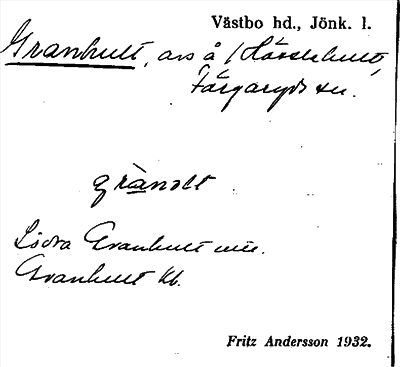 Västbo hd., Jönk. l.
Granhult, avs å Hörsehult,
Färgaryds sn.
grànolt
Södra Granhult
Granhult kb.
Fritz Andersson 1932.